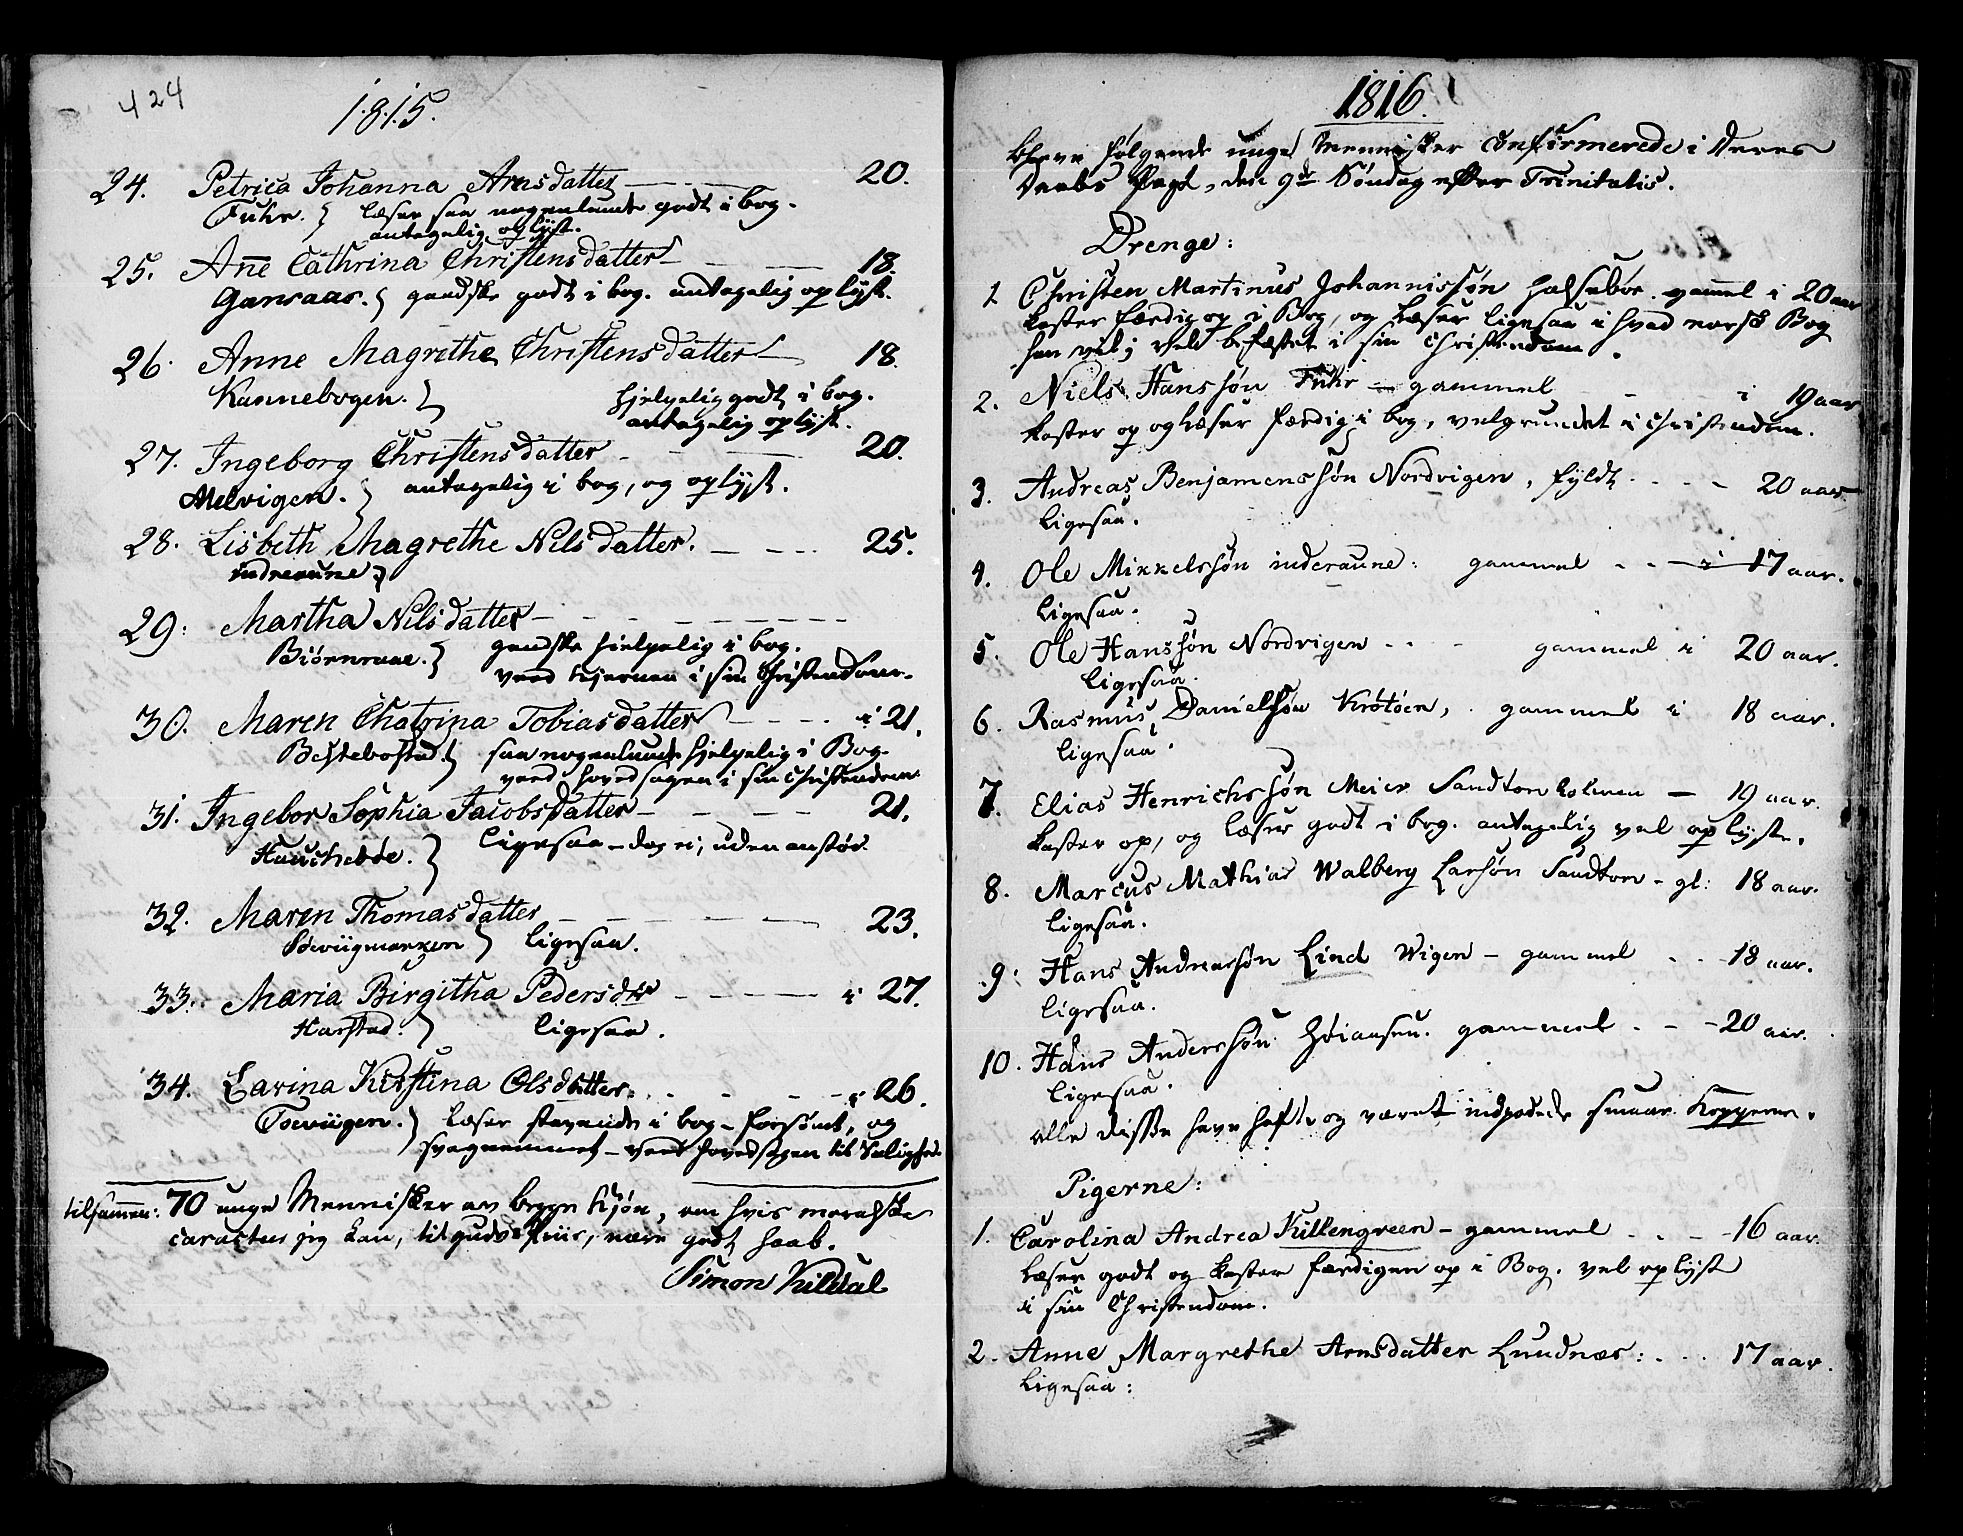 424
1815.
24. Petrica Johanna Arnsdatter 20.
Fuhr. } læser saa nogenlunde godt i bog.
antagelig oplyst.
25. Anne Cathrina Christensdatter 18.
Gansaas. } gandske godt i bog. antagelig oplyst.
26. Anne Magrethe Christensdatter 18.
Kannebogen. } hjelpelig godt i bog.
antagelig oplyst.
27. Ingeborg Christensdatter 20.
Melvigen. } antagelig i bog, og oplyst.
28. Lisbeth Magrethe Nilsdatter. 25.
indreaune }
29. Martha Nilsdatter
Biørnraae. } gandske hielpelig i bog.
veed kjernen i sin Christendom.
30. Maren Chatrina Tobiasdatter i 21.
Bestebostad } saa nogenlunde hjelpelig i Bog
veed hovedsagen i sin christendom.
31. Ingebor Sophia Jacobsdatter 21.
} ligesaa - dog ei, uden anstød.
32. Maren Thomasdatter 23.
} ligesaa.
33. Maria Birgitha Pedersdtr i 27.
Harstad. } ligesaa.
34. Larina Kirstina Olsdatter. i 26.
} læser stavende i bog - forsømt, og
svagnemmet - veed hovedsagen til Salighed.
tilsammen: 70 unge Mennisker av begge kjøn, om hvis moralske
caracteer jeg kan, til gudsPriis, nære godt haab.
Simon Kildal
1816.
bleve følgende unge Mennisker Confirmerede i Deres
Daabs Pagt, den 9de Søndag efter Trinitatis.
Drenge:
1 Christen Martinus Johannissøn Halsebøe. gammel i 20 aar
kaster færdig op i Bog, og læser ligesaa i hvad norsk Bog
han vil; vel befæstet i sin Christendom.
2. Niels Hanssøn Fuhr - gammel i 19 aar
kaster op og læser færdig i bog, velgrundet i christendom.
3. Andreas Benjamenssøn Nordvigen, fyldt 20 aar
ligesaa.
4. Ole Mikkelssøn inderaune: gammel i 17 aar.
ligesaa.
5. Ole Hanssøn Nordvigen gammel i 20 aar.
ligesaa.
6. Rasmus Danielsøn Krøtøen, gammel i 18 aar.
ligesaa.
7. Elias Henrichssøn Meier Sandtorholmen - 19 aar.
kaster op, og læser godt i bog. antagelig vel oplyst.
8. Marcus Mathias Walberg Larsøn Sandtorv - gl: 18 aar.
ligesaa.
9: Hans Andreassøn Lind Wigen - gammel 18 aar.
ligesaa.
10. Hans Anderssøn gammel 20 aar.
ligesaa.
Alle disse have havt, og været indpodede smaae Kopperne.
Pigerne:
1. Carolina Andrea Killengreen - gammel 16 aar.
læser godt og kaster færdigen op i Bog. vel oplyst
i sin Christendom.
2. Anne Margrethe Arnsdatter Lundnæs: 17 aar.
Ligesaa: